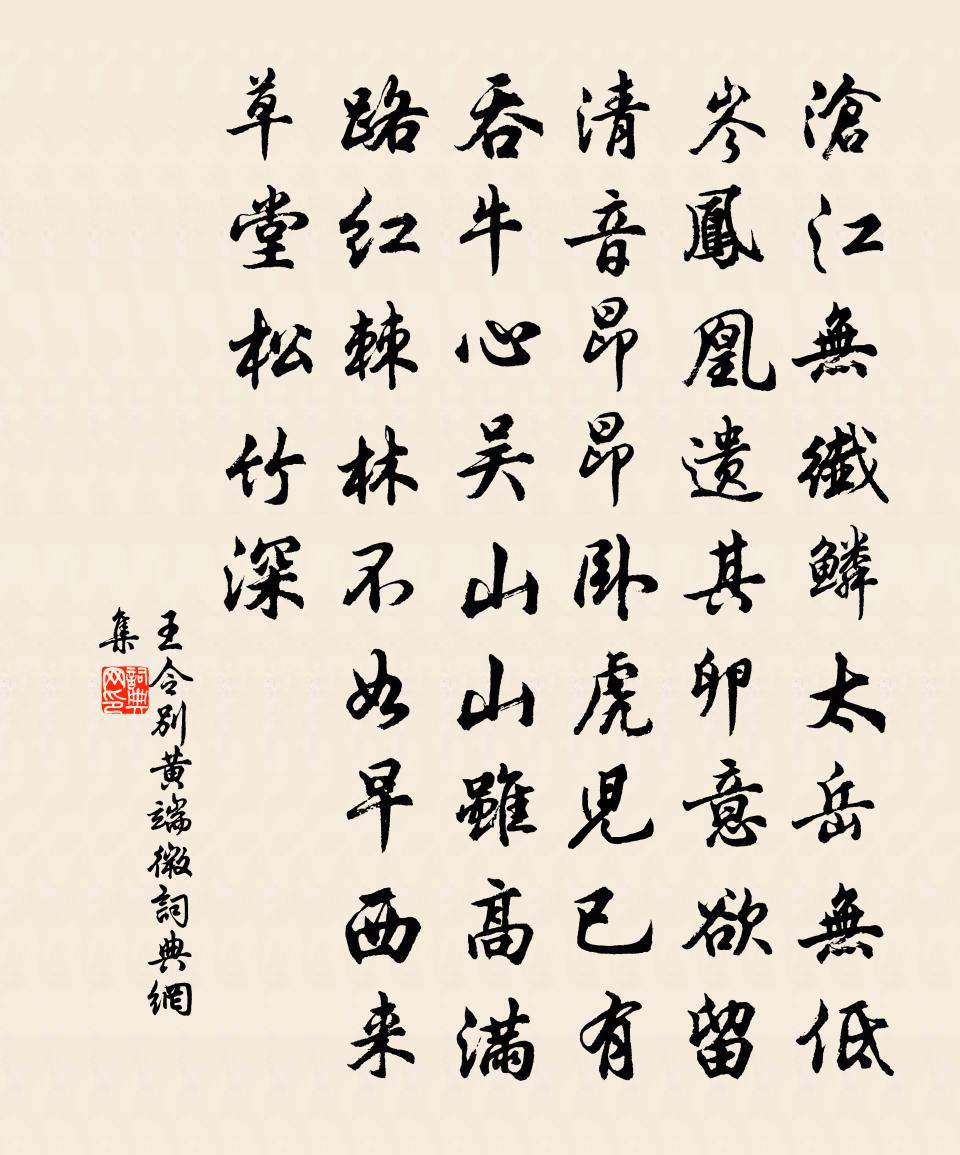 滄江無纖鱗太岳無低
岑鳳凰遺其卵意欲留
清音昂昂卧虎児已有
吞牛心吴山山雖高满
路红棘林不如早西来
草堂松竹深
王令别黄端微詞典網
集
詞典网印